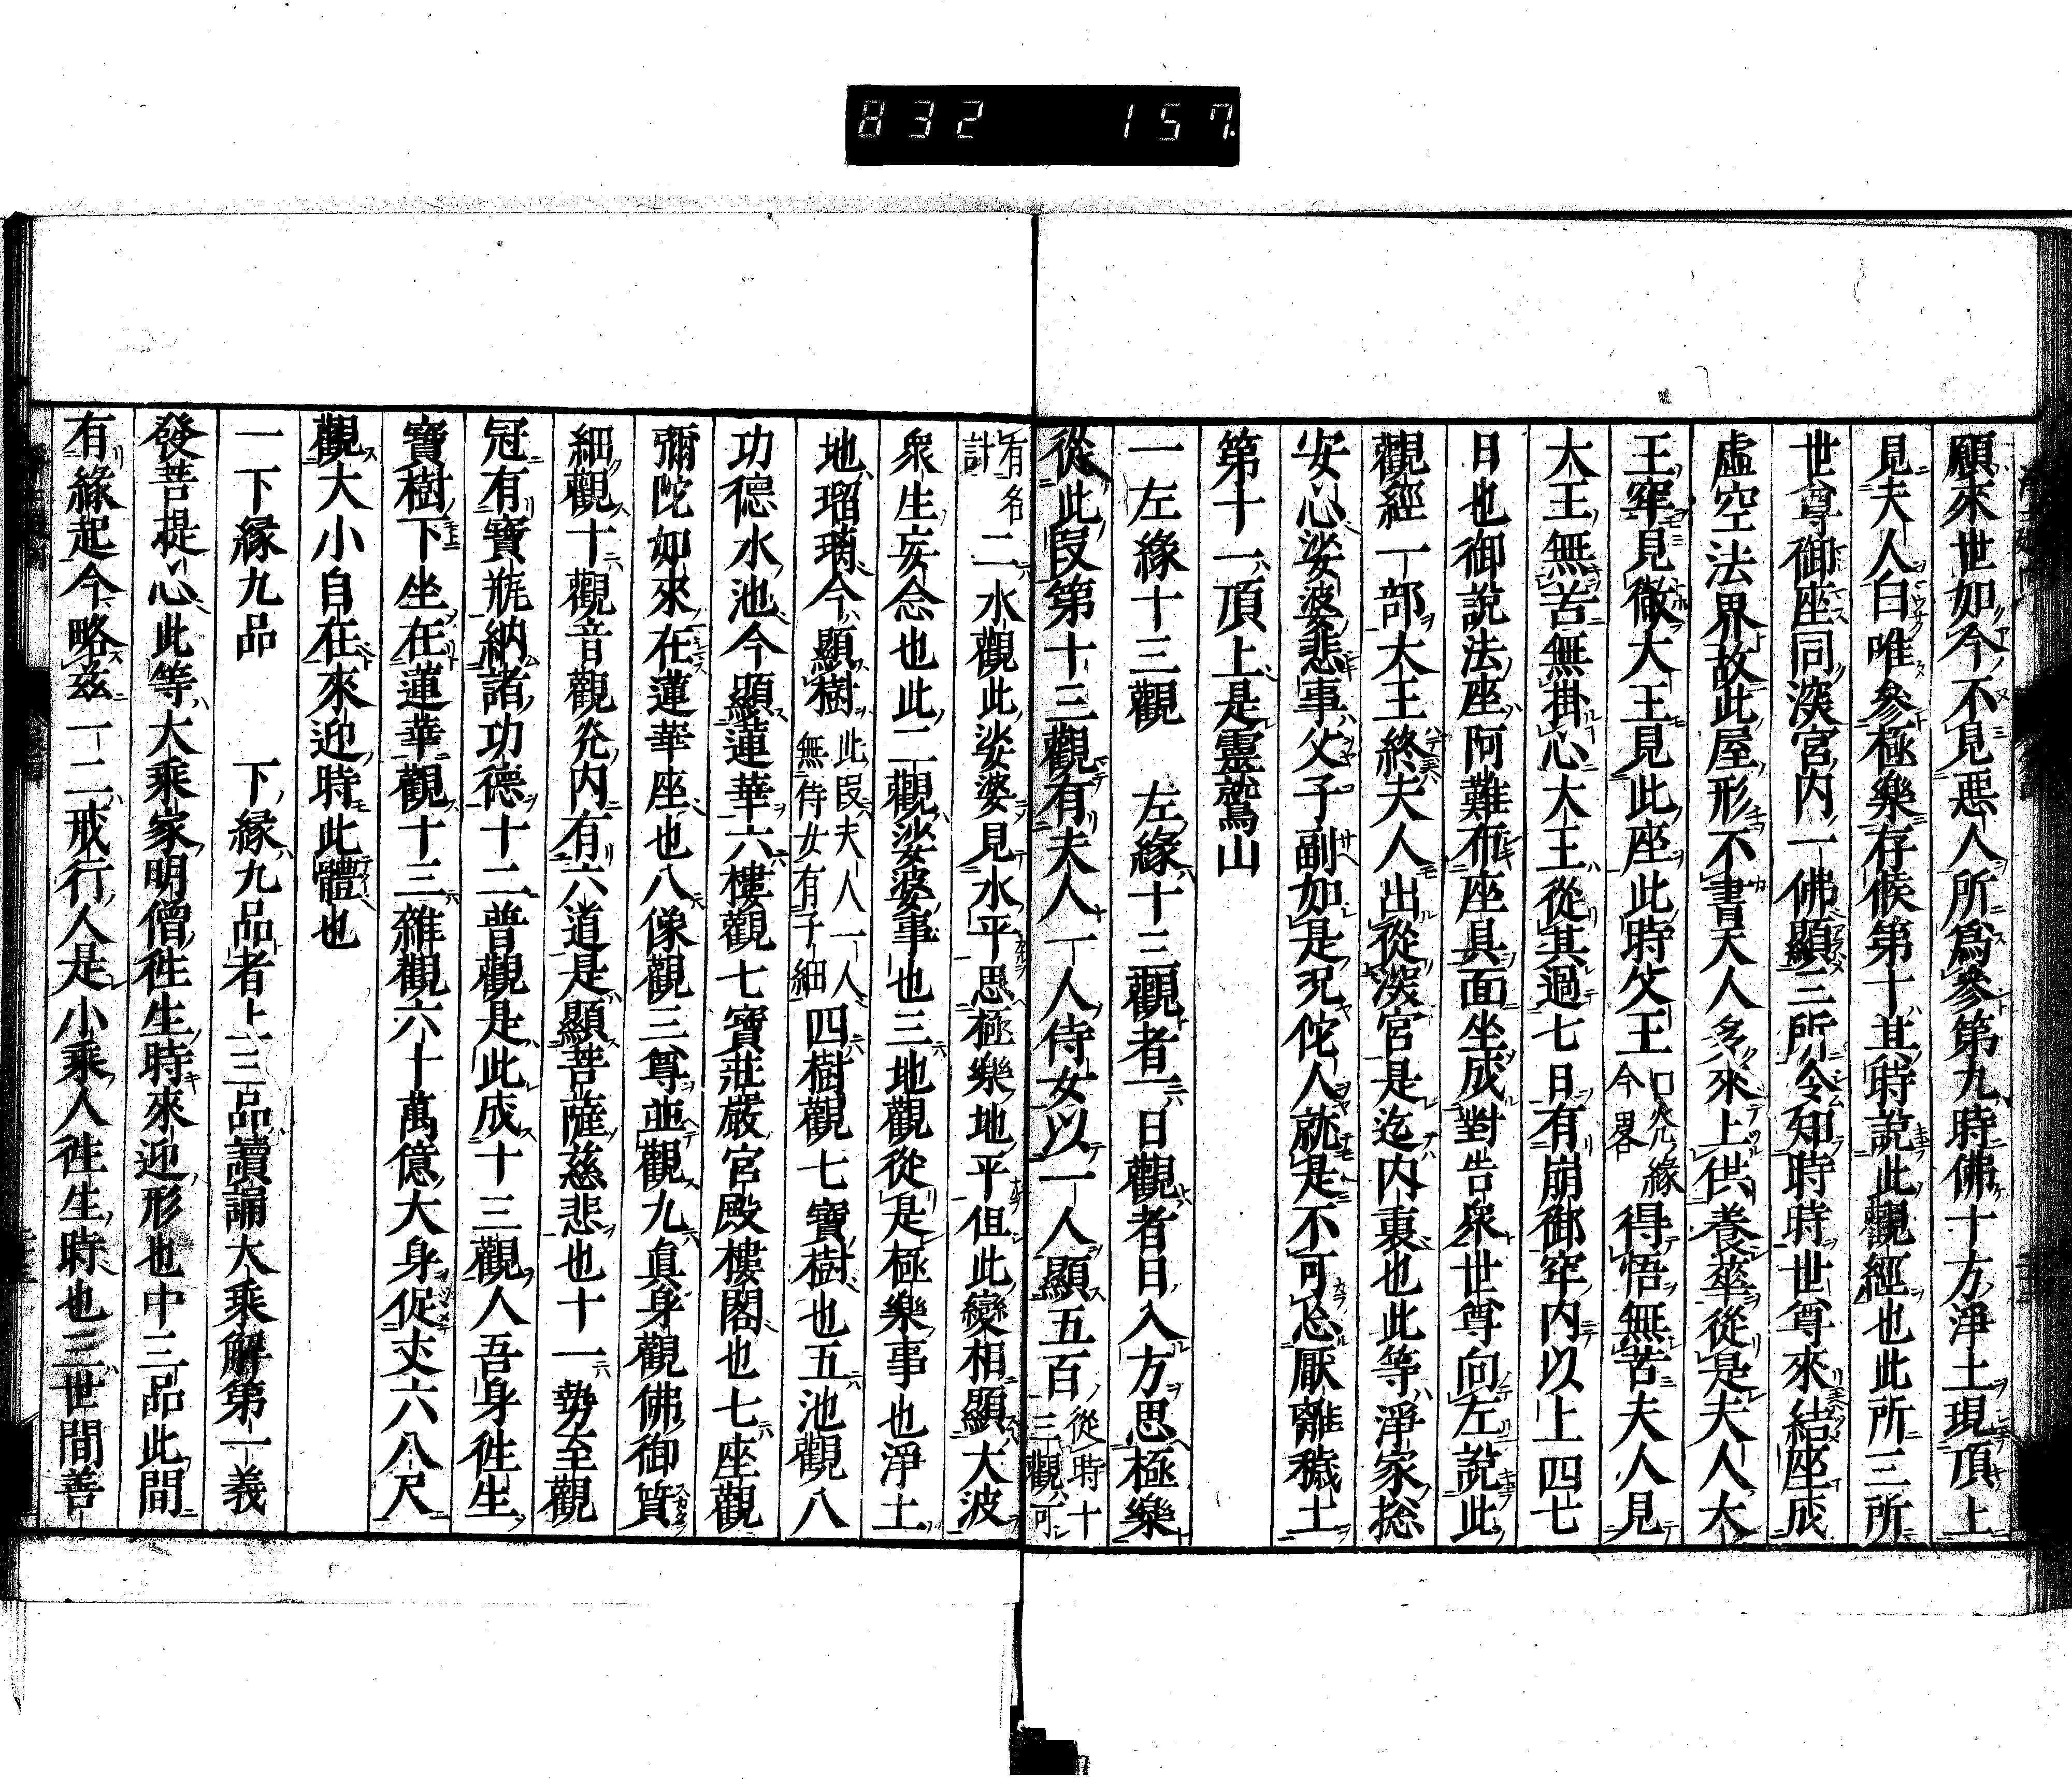 832 157
願來世如今不見惡人所爲參第九時佛十方淨土現頂上
見夫人白唯參極樂存候第十其時説此觀經也此所三所
世尊御座同深宮内一佛顯三所令知時時世尊來結座成
虛空法界故此屋形不書天人多來上供養華從是夫人大
王牢見徹大王見此座此時父王口父緣今畧得悟無苦夫人見
大王無苦無掛心大王從其過七日有崩御牢内以上四七
日也御説法座阿難布座具面坐成對告衆世尊向左説此
觀經一部大王終夫人出從深宮是迄内裏也此等淨家捴
安心娑婆悲事父子副如是況佗人就是不可忘厭離穢土
第十一頂上是靈鷲山
一左緣十三觀 左緣十三觀者一日觀者日入方思極樂
從此段第十三觀有夫人一人侍女以一人顯五百從時十三觀可
有各計二水觀此娑婆見水平思極樂地平但此變相顯大波
衆生妄念也此二觀娑婆事也三地觀從是極樂事也淨土
地瑠璃今顯樹此段夫人一人無侍女有子細四樹觀七寶樹也五池觀八
功德水池今顯蓮華六樓觀七寶莊嚴宮殿樓閣也七座觀
彌陀如來在蓮華座也八像觀三尊並觀九眞身觀佛御質
細觀十觀音觀光内有六道是顯菩薩慈悲也十一勢至觀
冠有寶瓶納諸功德十二普觀是此成十三觀人吾身徃生
寶樹下坐在蓮華觀十三雜觀六十萬億大身促丈六八尺
觀大小自在來迎時此體也
一下緣九品 下緣九品者上三品讀誦大乘解第一義
發菩提心此等大乘家明僧徃生時來迎形也中三品此間
有緣起今略茲一二戒行人是小乘人徃生時也三世間善